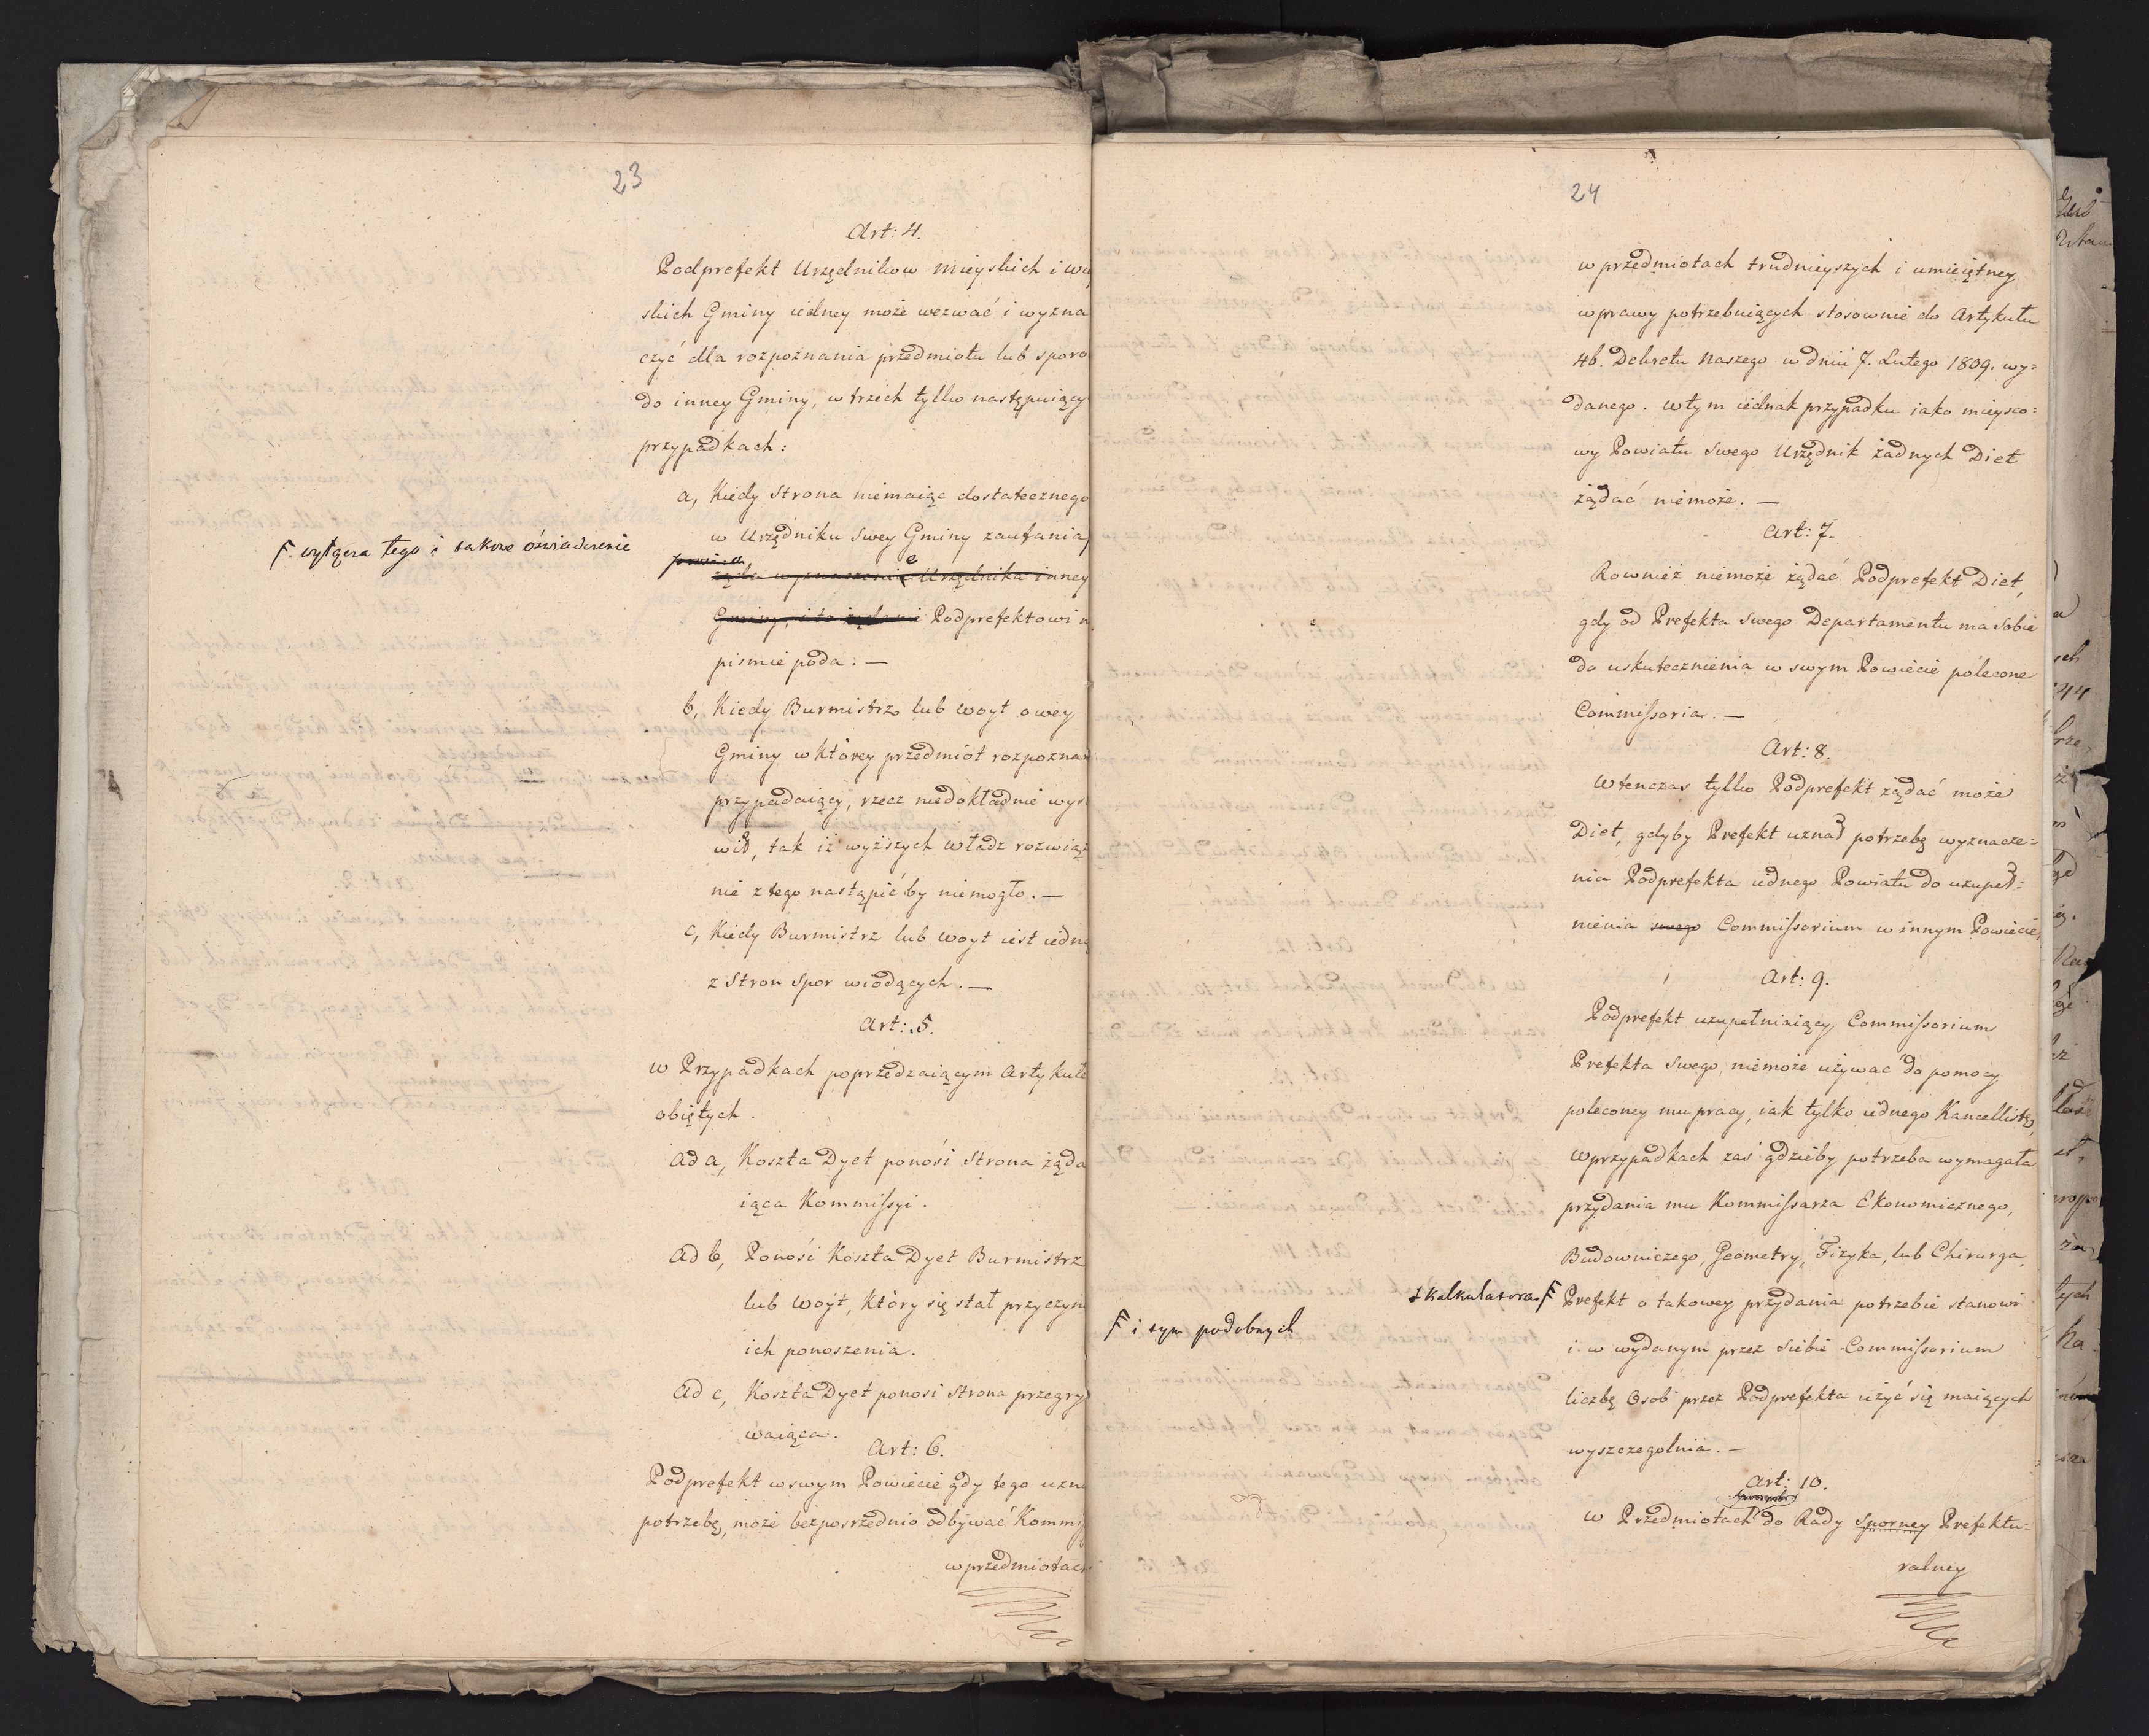 23
Art: 4.
Podprefekt Urzędnikow mieyskich i wiey
skich Gminy iedney może wezwać i wyzna
czyć dla rozpoznania przedmiotu lub sporo
do inney Gminy, w trzech tylko następuiący
przypadkach:
a, Kiedy Strona niemaiąc dostatecznego
w Urzędniku swey Gminy zaufania,
F. wyłącza tego i takowe oświadczenie
żąda wyznaczenia Urzędnika inney
Gminy, i to żądanie Podprefektowi n
pismie poda. —
b, Kiedy Burmistrz lub woyt owey
Gminy w którey przedmiót rozpozna
przypadaiący, rzecz niedokładnie wys
wił, tak iż wyższych władz rozwiąz
nie z tego nastąpić by niemogło. —
c, Kiedy Burmistrz lub woyt iest iedną
z Stron spor wiodących. —
Art: 5.
w Przypadkach poprzedzaiącym Artykule
obiętych.
Ad a, Koszta Dyet ponosi Strona żąda
iąca Kommissyi.
Ad b, Ponosi Koszta Dyet Burmistrz
lub Woyt, który się stał przyczyn
ich ponoszenia.
Ad c, Koszta Dyet ponosi Strona przegry
waiąca.
Art: 6.
Podprefekt w swym Powiecie gdy tego uzna
potrzebę, może bezposrzednio odbywać Kommis
w przedmiotach
24
w przedmiotach trudnieyszych i umieiętney
wprawy potrzebuiących stosownie do Artykułu
46. Dekretu Naszego w dniu 7. Lutego 1809. wy=
danego. w tym iednak przypadku iako mieysco=
wy Powiatu swego Urzędnik żadnych Diet
żądać niemoże. —
Art: 7.
Rownież niemoże żądać Podprefekt Diet,
gdy od Prefekta swego Departamentu ma sobie
do uskutecznienia w swym Powiecie polecone
Commissoria. —
Art: 8.
Wtenczas tylko Podprefekt żądać może
Diet, gdyby Prefekt uznał potrzebę wyznacze=
nia Podprefekta iednego Powiatu do uzupeł=
nienia swego Commissorium w innym Powiecie,
Art: 9.
Podprefekt uzupełniaiący Commissorium
Prefekta swego, niemoże używać do pomocy
poleconey mu pracy, iak tylko iednego Kancellistę,
w przypadkach zaś gdzieby potrzeba wymagała
przydania mu Kommissarza Ekonomicznego,
Budowniczego, Geometry, Fizyka, lub Chirurga,
kalkulatora F
F i tym podobnych
Prefekt o takowey przydania potrzebie stanowi
i w wydanym przez siebie Commissorium
liczbę Osob przez Podprefekta użyć się maiących
wyszczegolnia. —
Art: 10.
w Przedmiotach do Rady Sporney Prefektu=
ralney